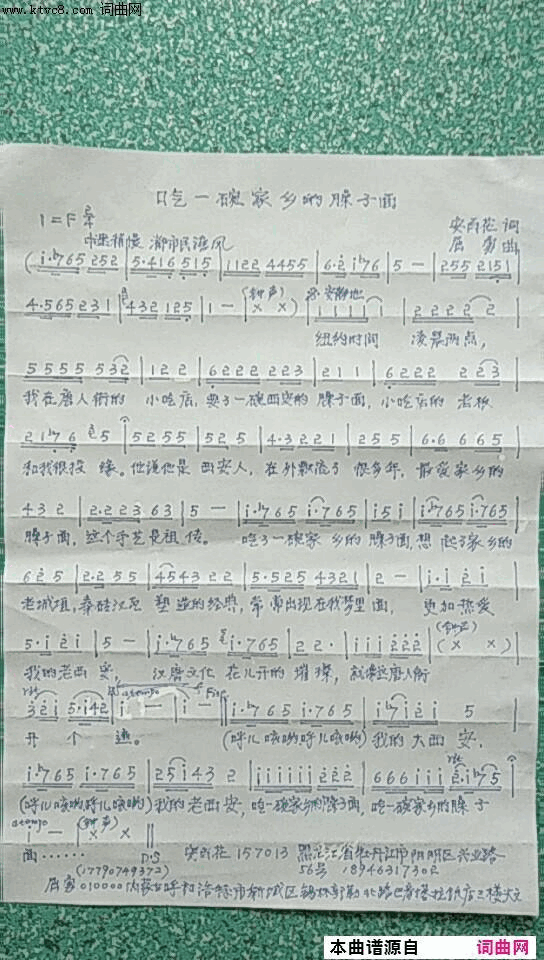 www.ktvc8.com 词曲网
吃一碗家乡的臊子面
1=F 安西花 词
中速稍慢 都市民谣风 屈家 曲
(i·♭765 252 | 5·416 515 | 1122 4455 | 6·2 i♭76 | 5 — | 255 2151 |
4·565 231 | 432 125 | 1 — | (钟声) x x) | 安静地 1 1 1 1 1 | 2 2 2 2 2 |
纽约时间 凌晨两点,
5555 532 | 122 | 6222 223 | 211 | 6222 223 |
我在唐人街的 小吃店, 要了一碗西安的 臊子面, 小吃店的 老板
21♭76 5 | 5255 | 525 | 4·3221 | 255 | 6·6 665 |
和我很投 缘。他说他是 西安人, 在外飘流了 很多年, 最爱家乡的
432 | 2·2236 3 | 5 — | i·♭765 i·765 | i5i | i·♭765 i·765 |
臊子面, 这个手艺是祖传。 吃了一碗家 乡的 臊子面, 想 起了家乡的
625 | 2·2 55 | 4543 22 | 5·525 4321 | 2 — | i·i 2i |
老城垣, 秦砖汉瓦 塑造的经典, 常常出现在我梦里面, 更加热爱
5·i 2i | 5 — | i·♭765 i·765 | 22· | iii 222 | (钟声) (x x) |
我的老西安, 汉唐文化 花儿开的 璀璨, 就在这唐人街
rit 32i 5·i42 | atempo i — | i — Fine | i·♭765 i·765 | i♭7i2i 5 |
开个 遍。 (呼儿咳哟呼儿咳哟) 我的大西安,
i·♭765 i·765 | 25i43 2 | iiiiii 222 | 666iii rit 2·i♭75 |
(呼儿咳哟呼儿咳哟) 我的老西安, 吃一碗家乡的臊子面, 吃一碗家乡的臊子
atempo i — | (钟声) x x ||
面…… D.S 安西花 157013 黑龙江省牡丹江市阳明区兴业路
(17790749372) 56号 18946317302
屈家 010000 内蒙古呼和浩特市新城区锡林郭勒北路巴彦塔拉饭店三楼大文
本曲谱源自 词曲网